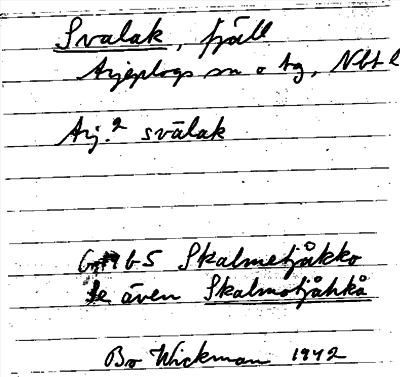 Svalak, fjäll
Arjeplogs sn o tg, Nbt l
Arj.² svālak
6S Skalmetjåkko
Se även Skalmotjåhkå
Bo Wickman 1942